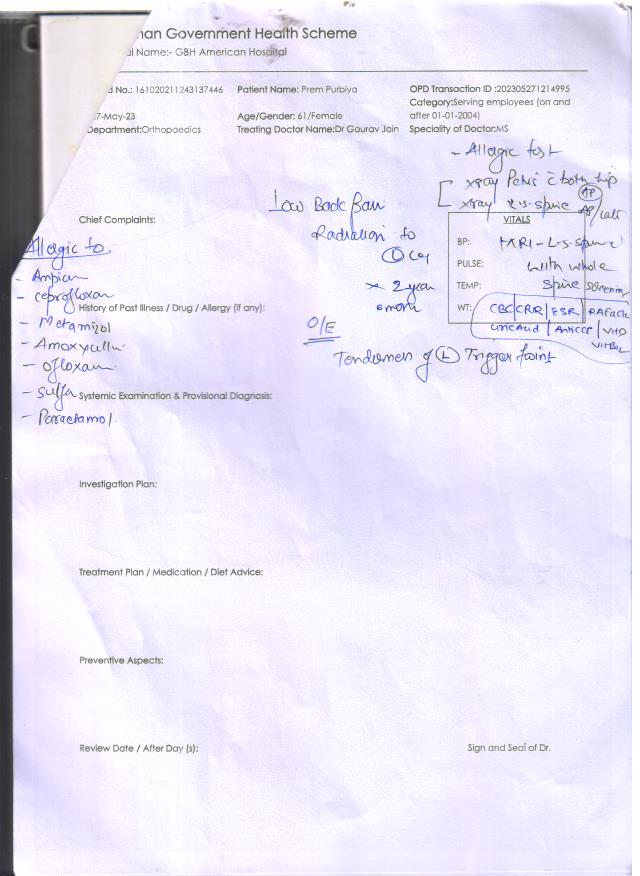 an Government Health Scheme
l Name:- GBH American Hospital
d No.: 161020211243137446 Patient Name: Prem Purbiya OPD Transaction ID :202305271214995
Category:Serving employees (on and
7-May-23 Age/Gender: 61/Female after 01-01-2004)
Department:Orthopaedics Treating Doctor Name:Dr Gaurav Jain Speciality of Doctor:MS
- Allergic test
xray Pelvis c both hip AP
xray L-S-spine AP/Lat
Low Back Pain
Radiation to
L Leg
x 2 year
Chief Complaints:
VITALS
BP: MRI-L-S-spine
PULSE: with whole
TEMP: Spine Screening
WT: CBC/CRP/ESR/RA Factor
Uric Acid / Anti CCP / Vit D
Vit B12
Allergic to
- Ampicin
- ceprofloxan
History of Past Illness / Drug / Allergy (if any):
- Metamizol
- Amoxycillin
- ofloxacin
- Sulfa
- Paractamol.
O/E
Tenderness of L Trigger point
Systemic Examination & Provisional Diagnosis:
Investigation Plan:
Treatment Plan / Medication / Diet Advice:
Preventive Aspects:
Review Date / After Day (s): Sign and Seal of Dr.